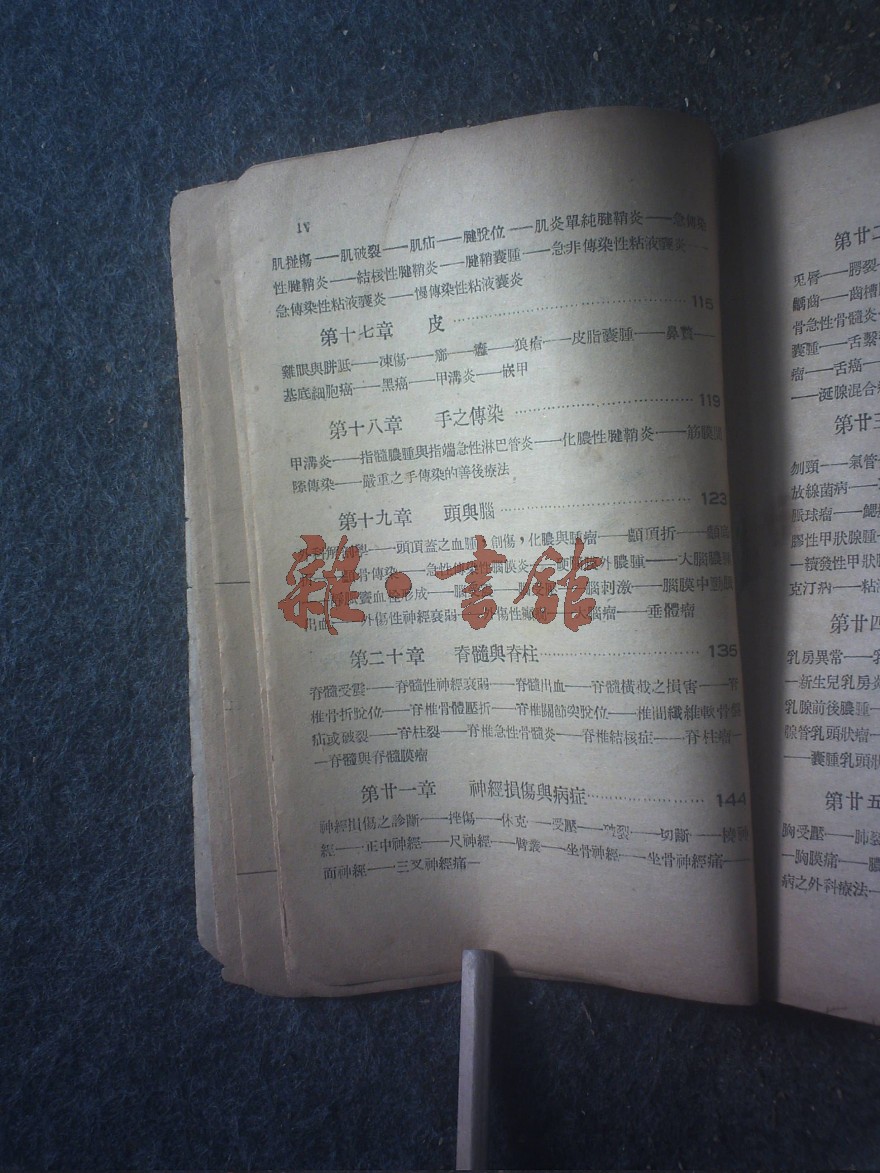 IV
肌挫傷——肌破裂——肌疝——腱脫位——肌炎單純腱鞘炎——急傳染
性腱鞘炎——結核性腱鞘炎——腱鞘囊腫——急非傳染性粘液囊炎——
急傳染性粘液囊炎——慢傳染性粘液囊炎
第十七章 皮 115
雞眼與胼胝——凍傷——癤——癰——狼瘡——皮脂囊腫——鼻贅——
基底細胞癌——黑癌——甲溝炎——嵌甲
第十八章 手之傳染 119
甲溝炎——指髓膿腫與指端急性淋巴管炎——化膿性腱鞘炎——筋膜間
隙傳染——嚴重之手傳染的善後療法
第十九章 頭與腦 123
——頭頂蓋之血腫，創傷，化膿與腫瘤——顱頂折——
骨傳染——急性傳染性腦膜炎——硬腦膜外膿腫——大腦膿腫
囊血栓形成——腦刺激——腦膜中動脈
出血——外傷性神經衰弱——外傷性——大腦瘤——垂體瘤
第二十章 脊髓與脊柱 135
脊髓受震——脊髓性神經衰弱——脊髓出血——脊髓橫截之損害——脊
椎骨折脫位——脊椎骨體壓折——脊椎關節突脫位——椎間纖維軟骨
疝或破裂——脊柱裂——脊椎急性骨髓炎——脊椎結核症——脊柱瘤—
—脊髓與脊髓膜瘤
第廿一章 神經損傷與病症 144
神經損傷之診斷——挫傷——休克——受壓——破裂——切斷——橈神
經——正中神經——尺神經——臂叢——坐骨神經——坐骨神經痛——
面神經——三叉神經痛—
雜·書館
第廿二
兎唇——腭裂
齲齒——齒槽
骨急性骨髓炎
囊腫——舌繫
瘤——舌癌——
——涎腺混合
第廿三
刎頸——氣管
放線菌病——
脈球瘤——鰓
膠性甲狀腺腫
—續發性甲狀
克汀病——粘
第廿四
乳房異常——乳
—新生兒乳房炎
乳腺前後膿腫——
腺管乳頭狀瘤——
——囊腫乳頭狀
第廿五
胸受壓——肺裂
—胸膜痛——膿
病之外科療法—